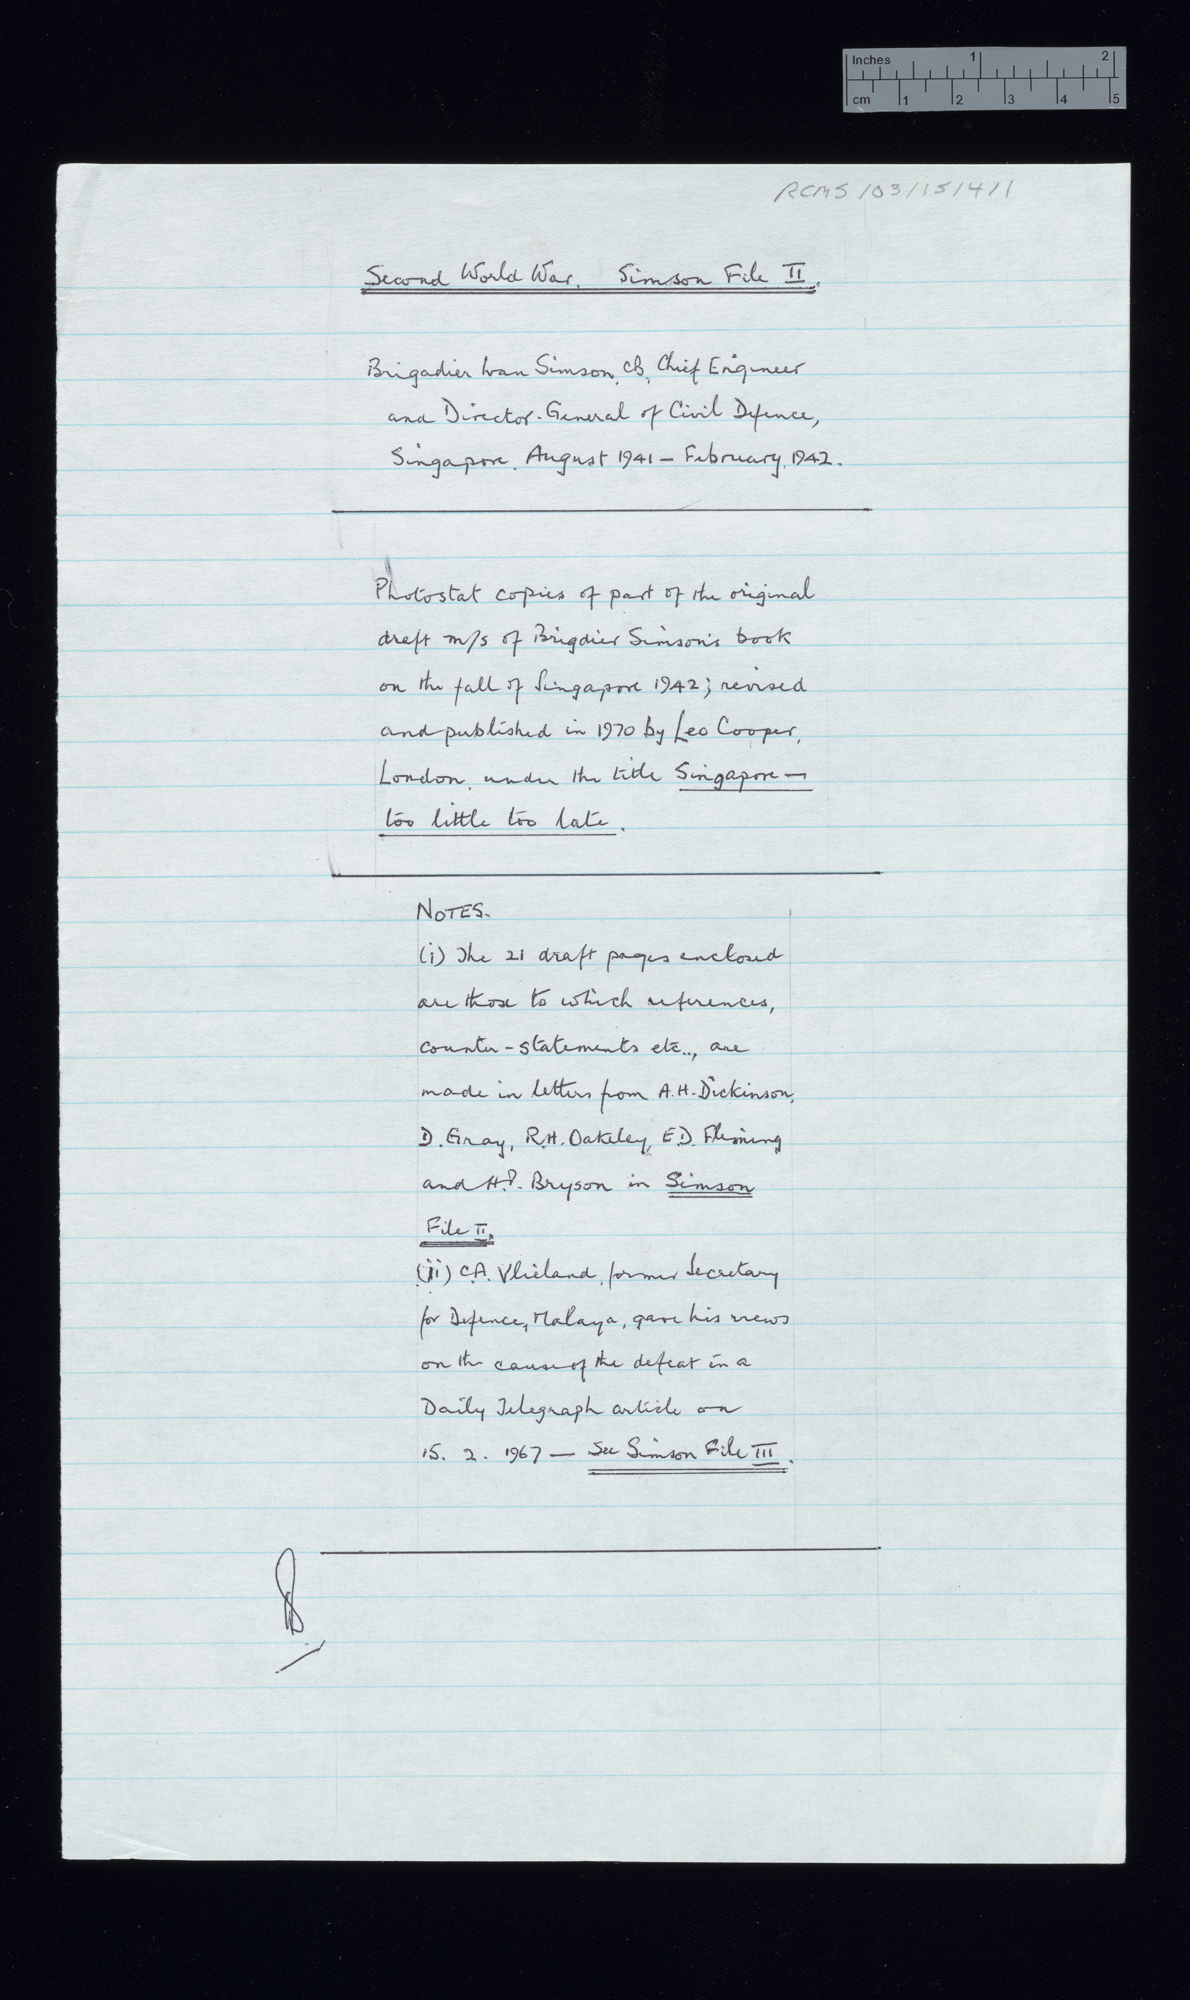 Inches 1 2
cm 1 2 3 4 5
RCMS 103/15/4/1
Second World War. Simson File II.
Brigadier Ivan Simson, CB, Chief Engineer
and Director-General of Civil Defence,
Singapore, August 1941 – February, 1942.
Photostat copies of part of the original
draft m/s of Brigdier Simson's book
on the fall of Singapore 1942; revised
and published in 1970 by Leo Cooper,
London, under the title Singapore —
too little too late.
NOTES.
(i) The 21 draft pages enclosed
are those to which references,
counter-statements etc.., are
made in letters from A.H. Dickinson,
D. Gray, R.H. Oakeley, E.D. Fleming
and H.P. Bryson in Simson
File II.
(ii) C.A. Vlieland, former Secretary
for Defence, Malaya, gave his views
on the cause of the defeat in a
Daily Telegraph article on
15. 2. 1967 — See Simson File III.